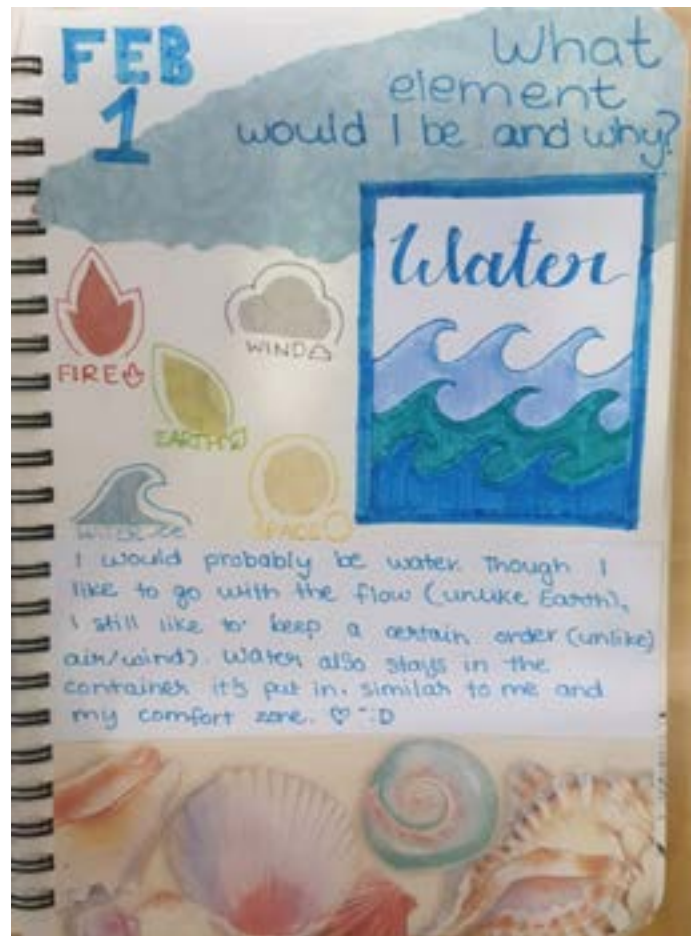 FEB
1
What
element
would I be and why?
Water
FIRE
WIND
EARTH
WATER
SPACE
I would probably be water. Though I
like to go with the flow (unlike Earth),
I still like to keep a certain order (unlike)
air/wind). Water also stays in the
container it's put in. similar to me and
my comfort zone. ♡ ~:D